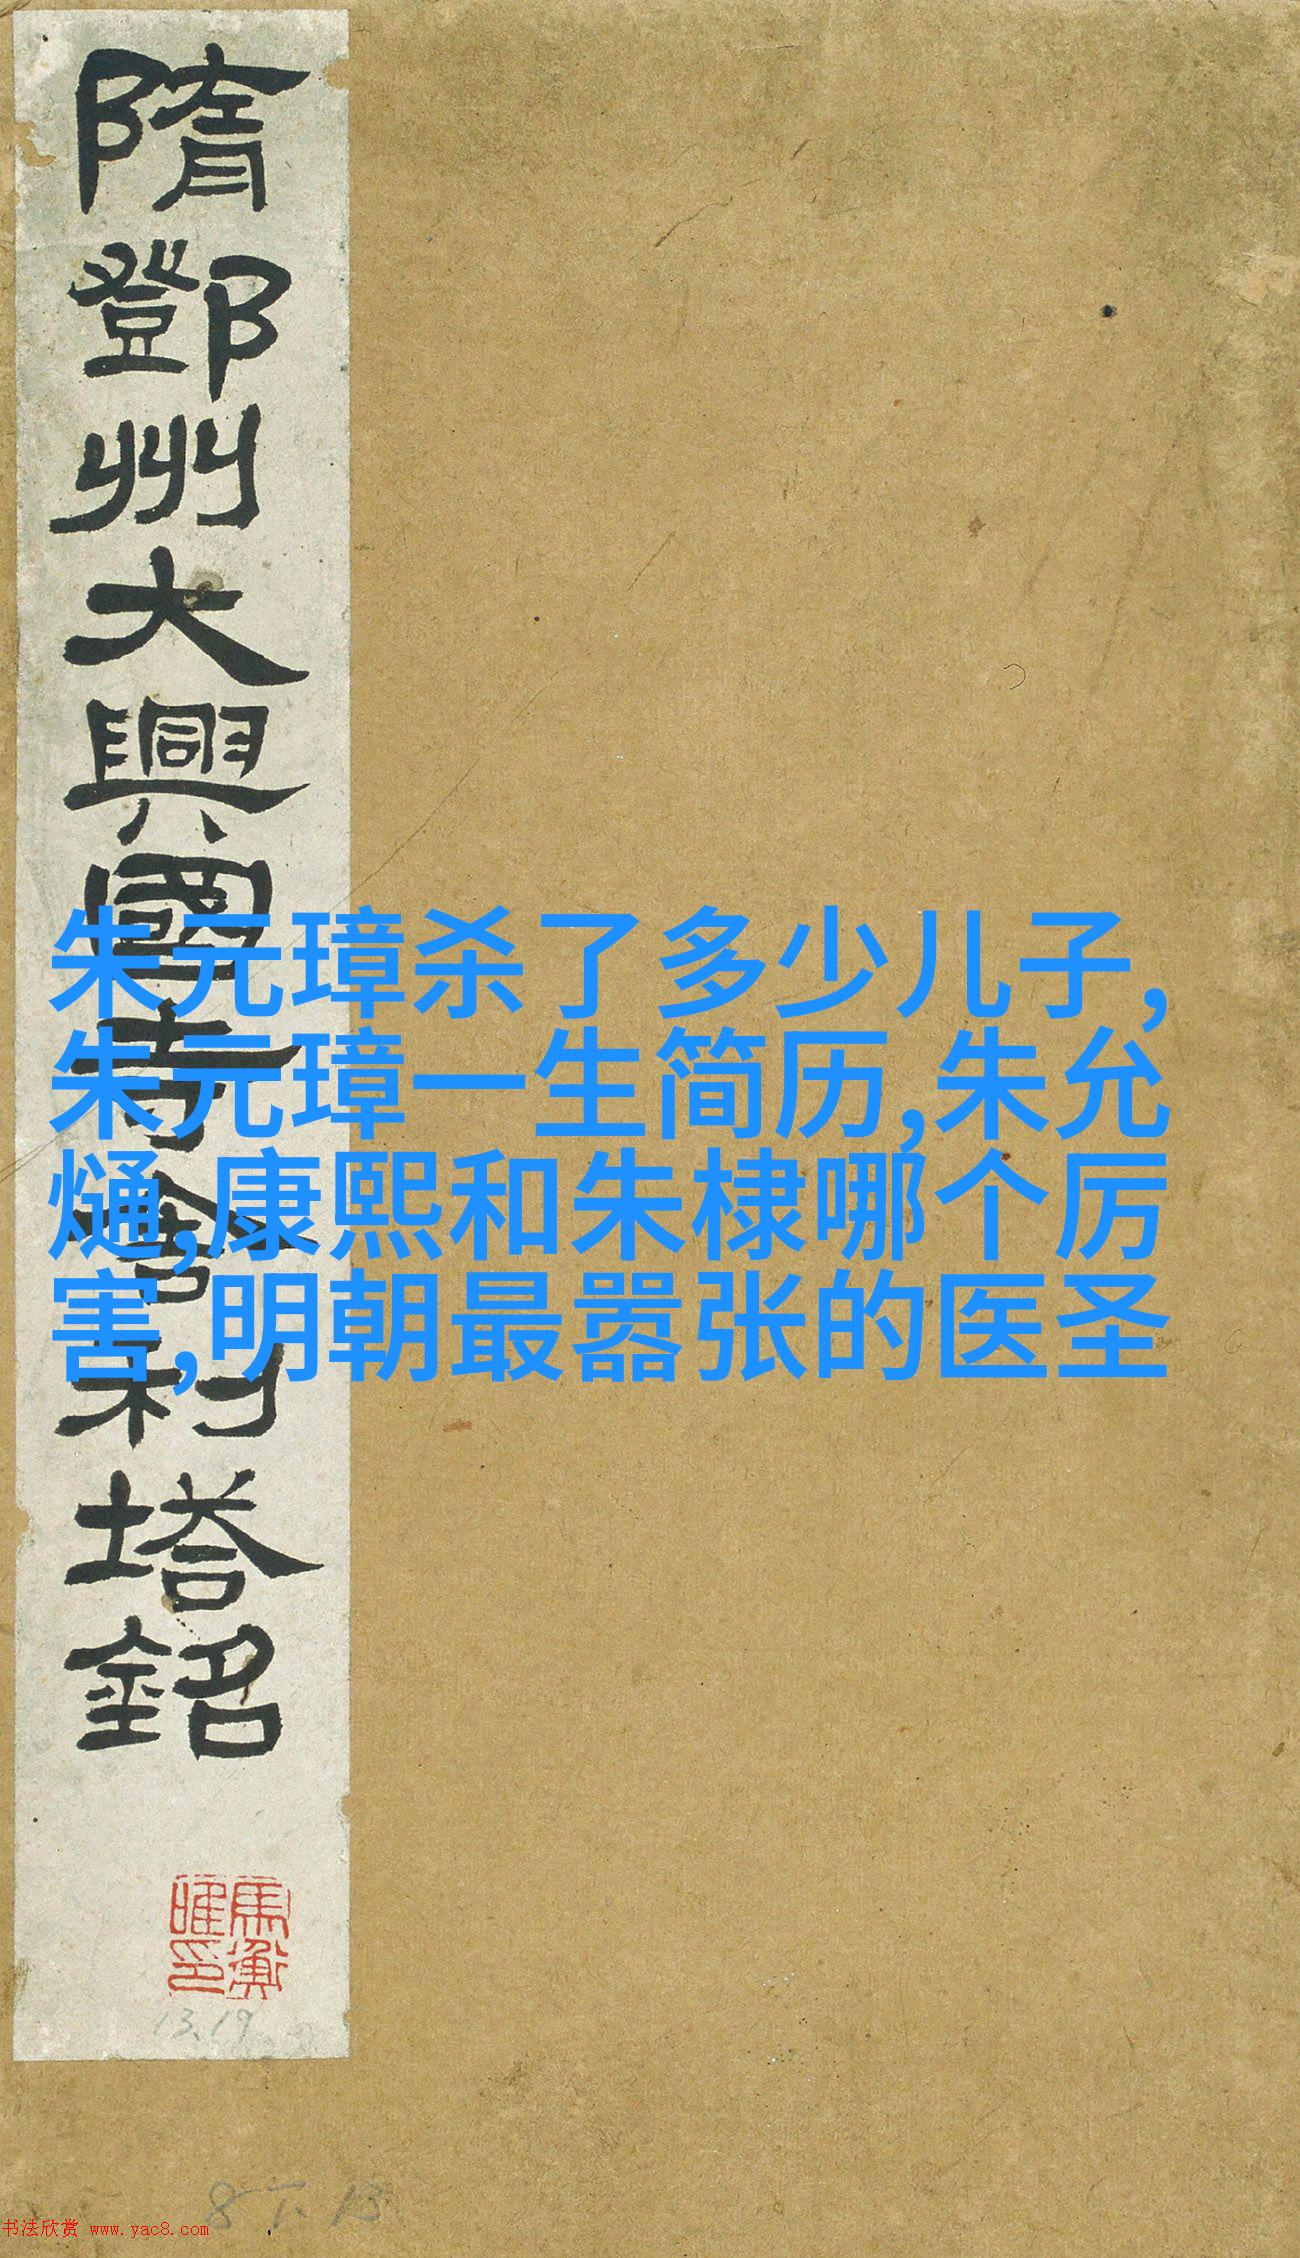 隋鄧州大興國寺舍利塔銘
朱元璋杀了多少儿子,
朱元璋一生简历,朱允
熥,康熙和朱棣哪个厉
害,明朝最嚣张的医圣
13.19
8下13
书法欣赏 www.yac8.com